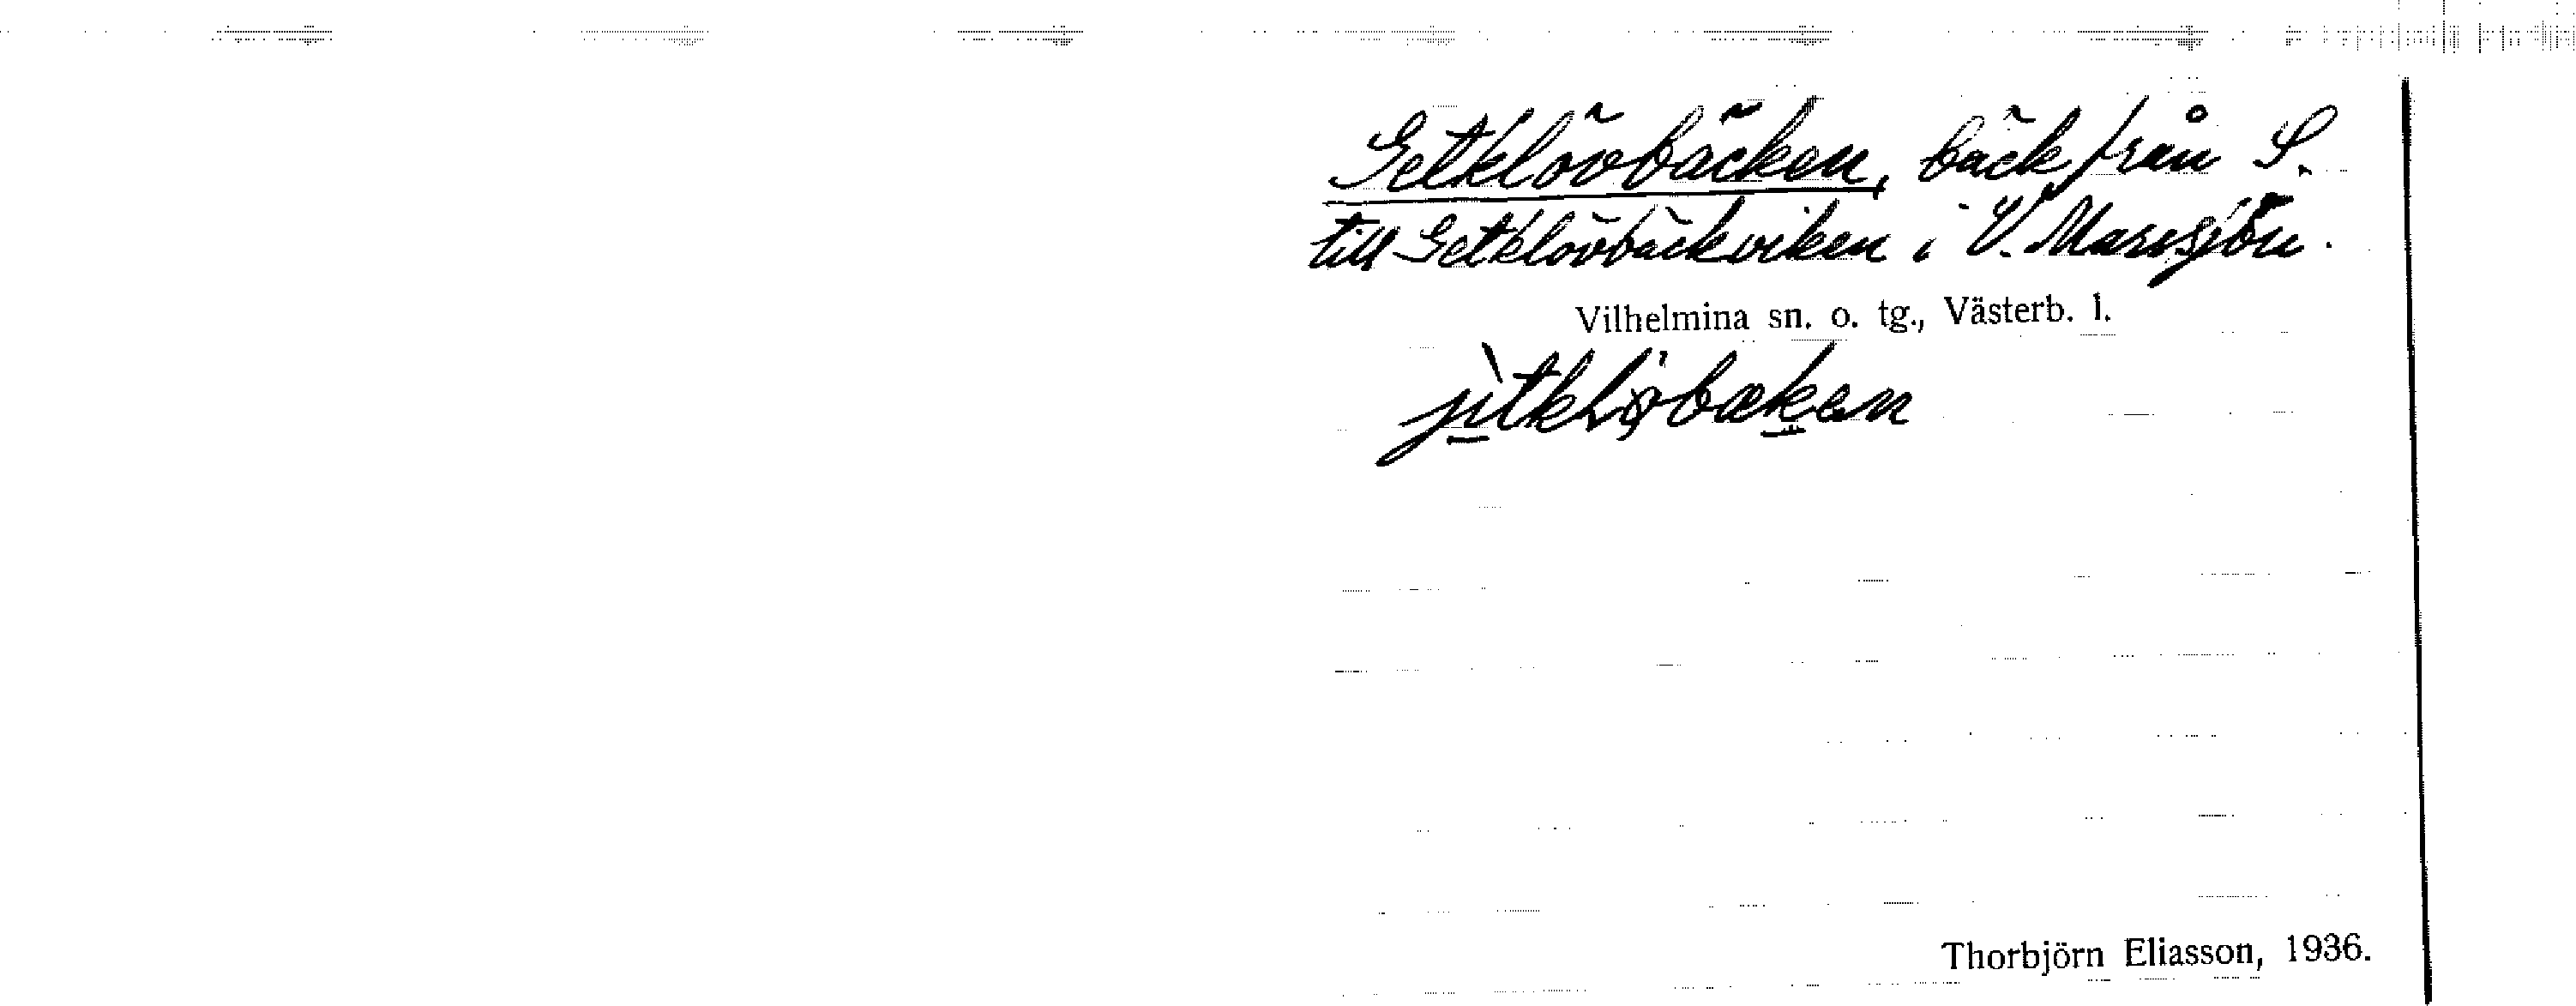 Getklövbäcken, bäck från S.
till Getklövbäckviken i V. Marssjön.
Vilhelmina sn. o. tg., Västerb. l.
Thorbjörn Eliasson, 1936.